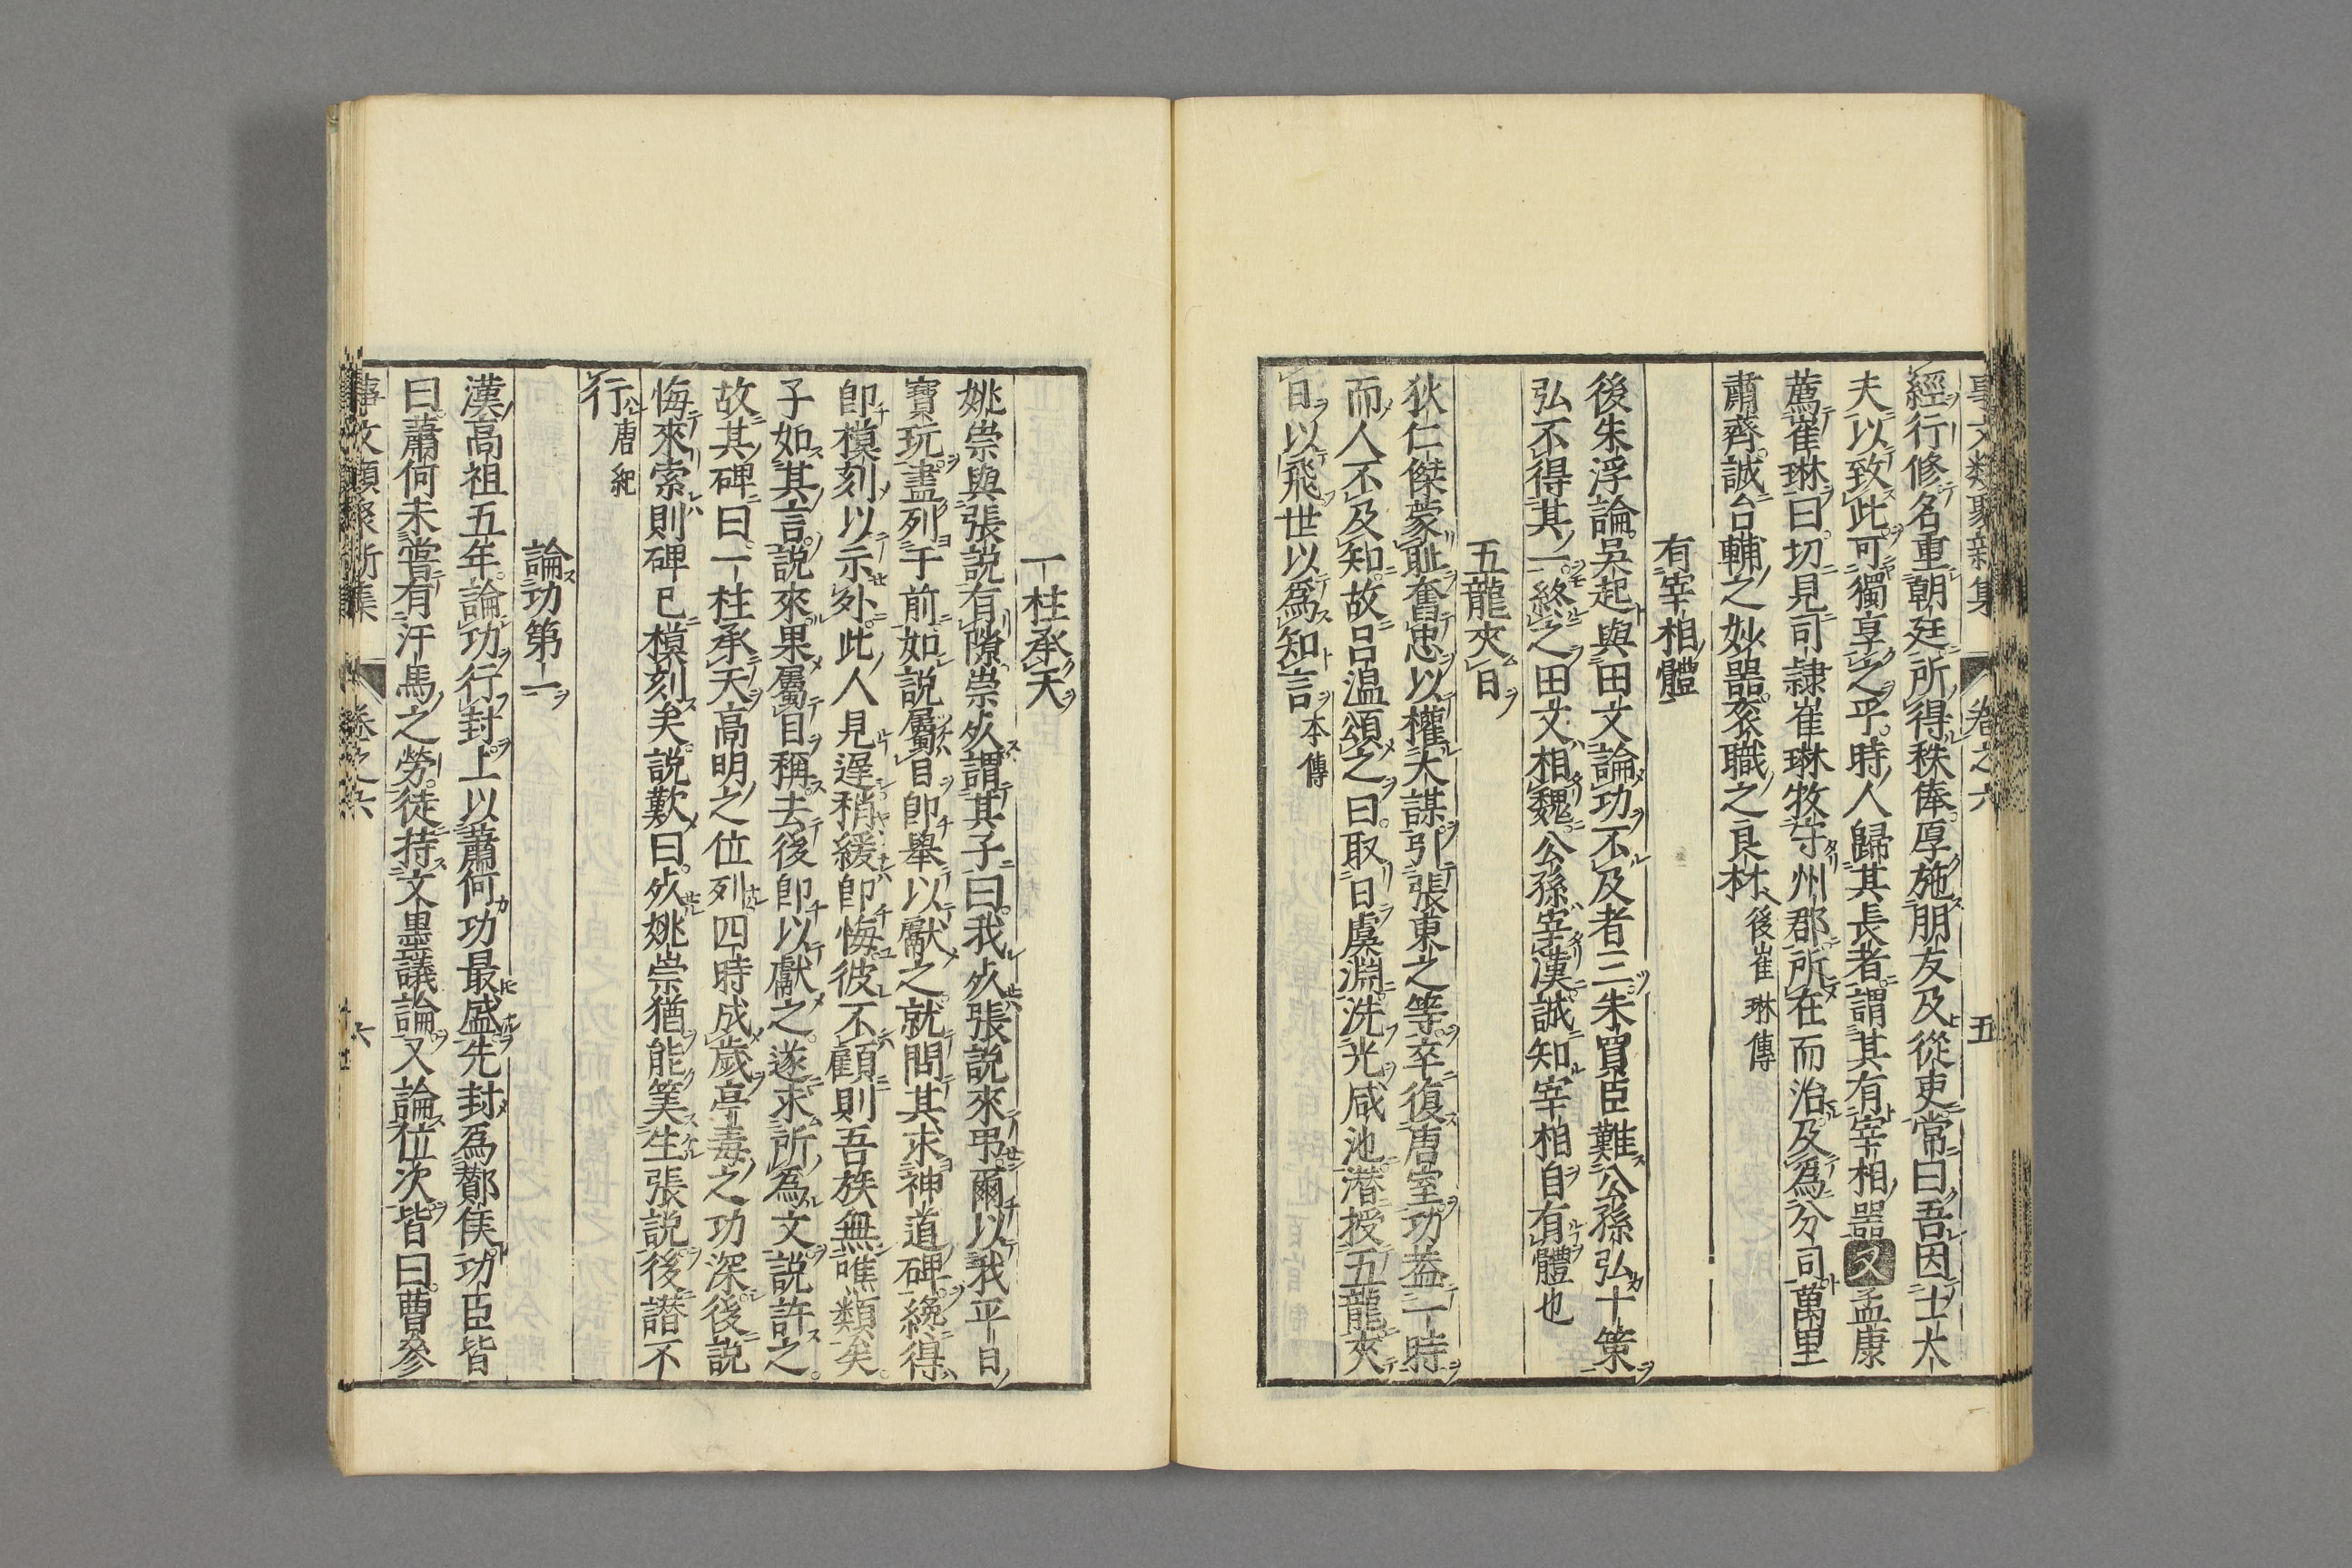 事文類聚新集 卷之六 五
經行修名重朝廷所得秩俸厚施朋友及從吏常曰吾因士大
夫以致此可獨享之乎時人歸其長者謂其有宰相噐又孟康
薦崔琳曰切見司隷崔琳牧守州郡所在而治及為外司萬里
肅齊誠台輔之妙噐衮職之良材後崔琳傳
有宰相體
後朱浮論吳起與田文論功不及者三朱買臣難公孫弘十策
弘不得其一終之田文相魏公孫宰漢誠知宰相自有體也
五龍夾日
狄仁傑蒙耻奮忠以權大謀引張柬之等卒復唐室功蓋一時
而人不及知故吕温頌之曰取日虞淵洗光咸池潜授五龍夾
日以飛世以為知言本傳
一柱承天
姚崇與張説有隙崇㱕謂其子曰我㱕張説來弔爾以我平日
寶玩盡列于前如説屬目即舉以獻之就問其求神道碑纔得
即模刻以示外此人見遲稍緩即悔彼不顧則吾族無噍類矣
子如其言説來果屬目稱去後即以獻之遂求所為文説許之
故其碑曰一柱承天高明之位列四時成歲亭毒之功深後説
悔來索則碑已模刻矣説歎曰㱕姚崇猶能筭生張説後譖不
行唐紀
論功第一
漢高祖五年論功行封上以蕭何功最盛先封為酇侯功臣皆
曰蕭何未嘗有汗馬之勞徒持文墨議論又論位次皆曰曹參
事文類聚新集 卷之六 六